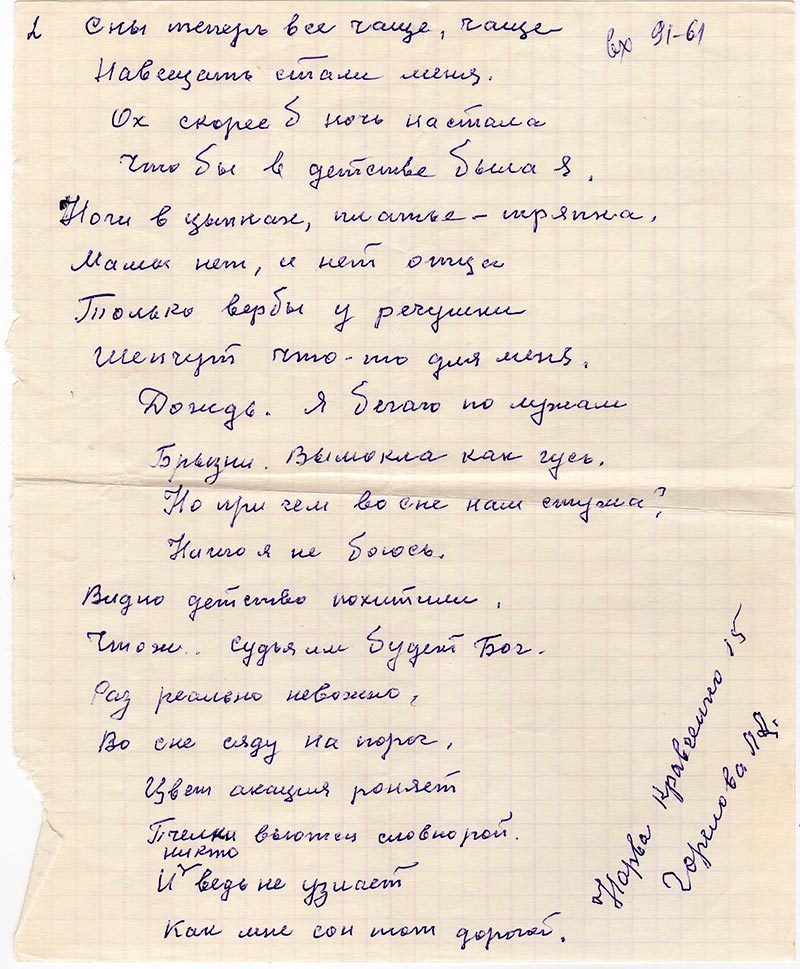 2 Сны теперь все чаще, чаще
вх 91-61
Навещать стали меня.
Ох скорее б ночь настала
Что бы в детстве была я.
Ноги в цыпках, платье - тряпка.
Мамы нет, и нет отца
Только вербы у речушки
Шепчут что-то для меня.
Дождь. Я бегаю по лужам
Брызги. Вымокла как гусь.
Но при чем во сне нам стужа?
Ничего я не боюсь.
Видно детство похитили.
Чтож.. судья им будет Бог.
Раз реально невожно,
Во сне сяду на порог.
Цвет акация роняет
Пчелки вьются словнорой.
никто
И ведь не узнает
Как мне сон тот дорогой.
Нарва Кравченко 15
Горелова Л.Д.